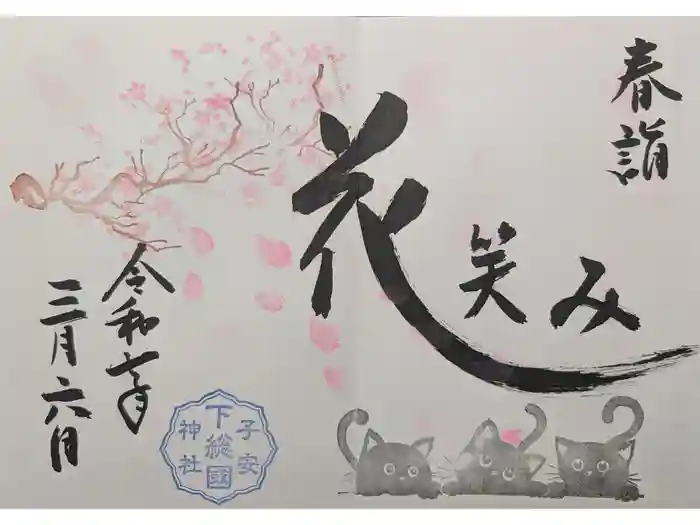 春詣
花笑み
令和七年
三月六日
子安
下総國
神社